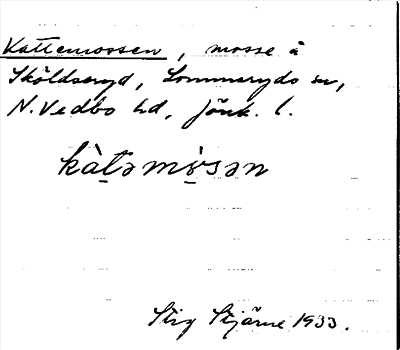 Kattemossen, mosse å
Sköldseryd, Lommaryds sn,
N. Vedbo hd, Jönk. l.
kàt̲əmò̲sən
Stig Stjärne 1933.